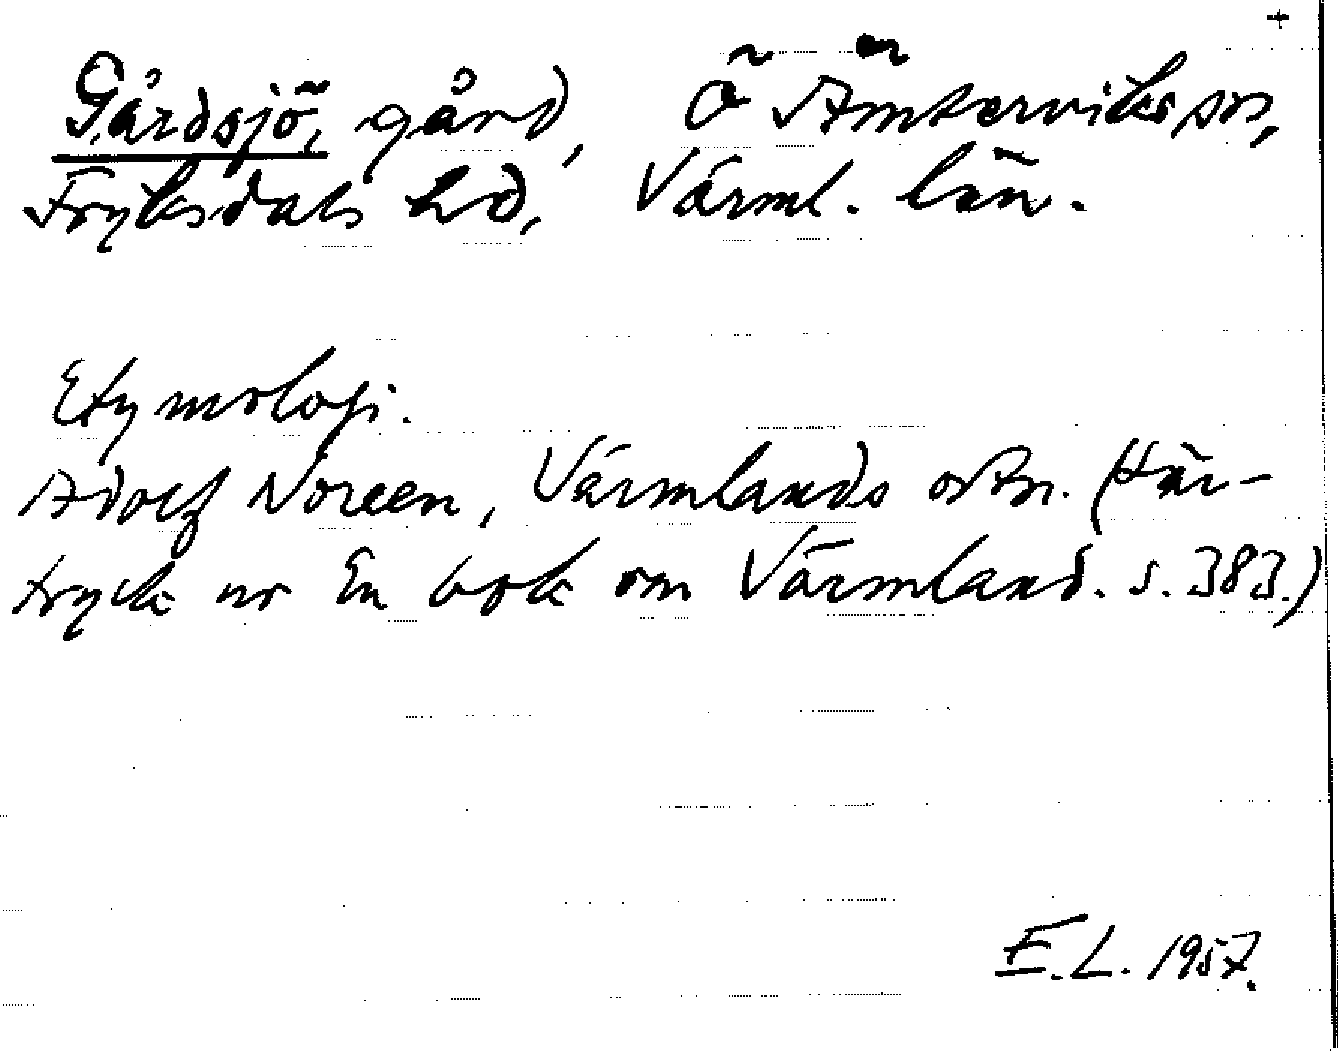 +
Gårdsjö, gård, Ö Ämterviks sn,
Fryksdals hd, Värml. län.
Etymologi.
Adolf Noreen, Värmlands ortn. (Sär-
tryck ur En bok om Värmland. s. 383.)
E.L. 1957.